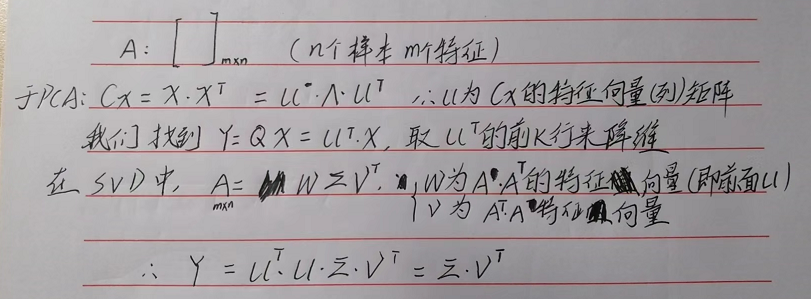 A: [ ]m×n (n个样本 m个特征)
于PCA: Cx = X·Xᵀ = U·Λ·Uᵀ ∴U为Cx的特征向量(列)矩阵
我们找到 Y=QX=Uᵀ·X, 取Uᵀ的前K行来降维
在SVD中, Am×n = WΣVᵀ. { W为A·Aᵀ的特征向量(即前面U)
V为Aᵀ·A特征向量
∴ Y = Uᵀ·U·Σ·Vᵀ = Σ·Vᵀ